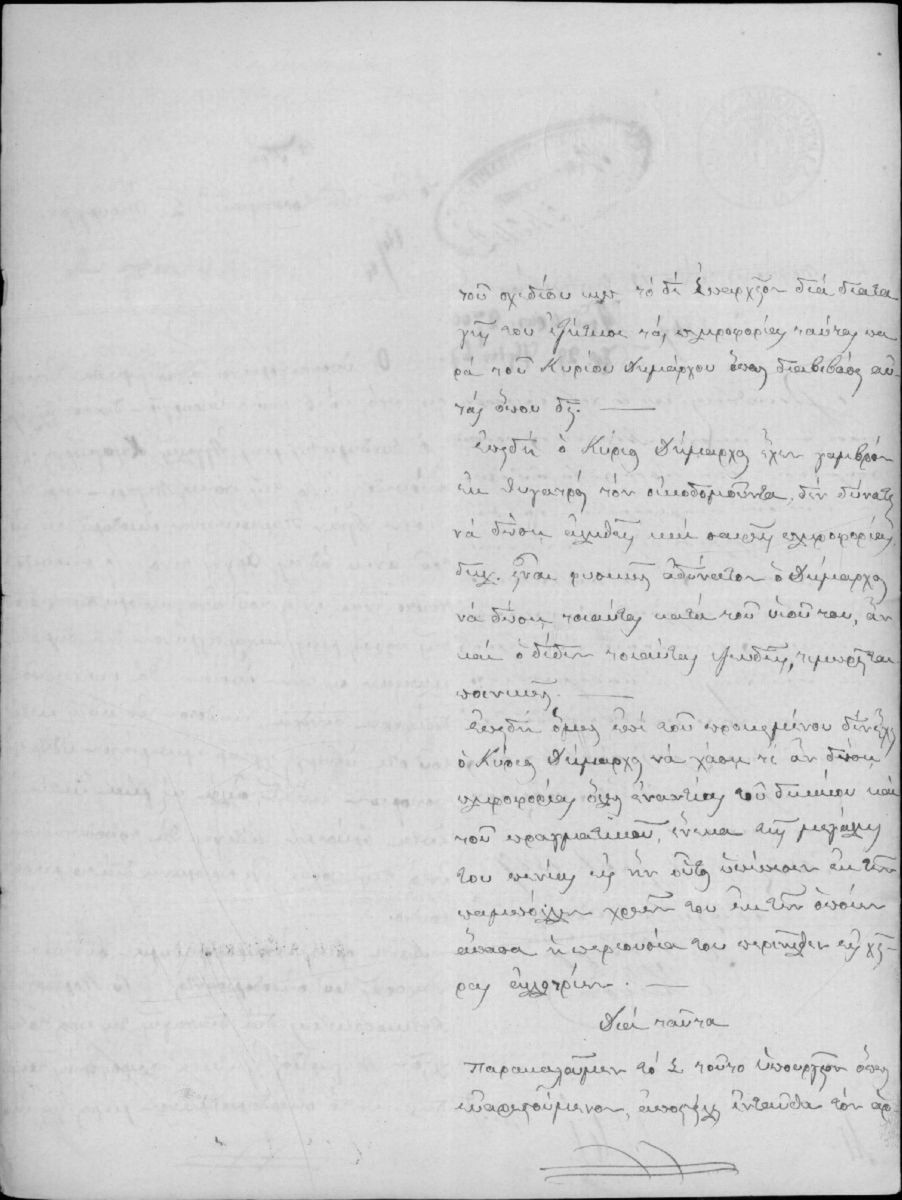 τοῦ σχεδίου καὶ τὸ δὲ Ἐπαρχεῖον διὰ διατα
γῆς του ἐζήτησε τὰς πληροφορίας ταύτας πα
ρὰ τοῦ Κυρίου Δημάρχου ὅπως διαβιβάσῃ αὐ
τὰς ὅπου δεῖ. —
Ἐπειδὴ ὁ Κύριος Δήμαρχος ἔχει γαμβρὸν
ἐκ θυγατρὸς τὸν οἰκοδομοῦντα, δὲν δύναται
νὰ δώσῃ ἀληθεῖς καὶ σαφεῖς πληροφορίας,
διότι εἶναι φυσικῶς ἀδύνατον ὁ Δήμαρχος
νὰ δώσῃ τοιαύτας κατὰ τοῦ υἱοῦ του, ἂν
καὶ ὁ δίδων τοιαύτας ψευδεῖς, τιμωρεῖται
ποινικῶς. —
Ἐπειδὴ ὅμως ἐπὶ τοῦ προκειμένου δὲν ἔχει
ὁ Κύριος Δήμαρχος νὰ χάσῃ τι ἂν δώσῃ
πληροφορίας ὅλως ἐναντίας τοῦ δικαίου καὶ
τοῦ πραγματικοῦ, ἕνεκα τῆς μεγάλης
του πενίας εἰς ἣν οὗτος ὑπέπεσεν ἐκ τῶν
παμπόλλων χρεῶν του ἐκ τῶν ὁποίων
ἅπασα ἡ περιουσία του περιῆλθεν εἰς χεῖ-
ρας ἀλλοτρίων. —
Διὰ ταῦτα
Παρακαλοῦμεν τὸ Σ. τοῦτο Ὑπουργεῖον ὅπως
εὐαρεστούμενον, ἀποστείλῃ ἐνταῦθα τὸν ἀρ